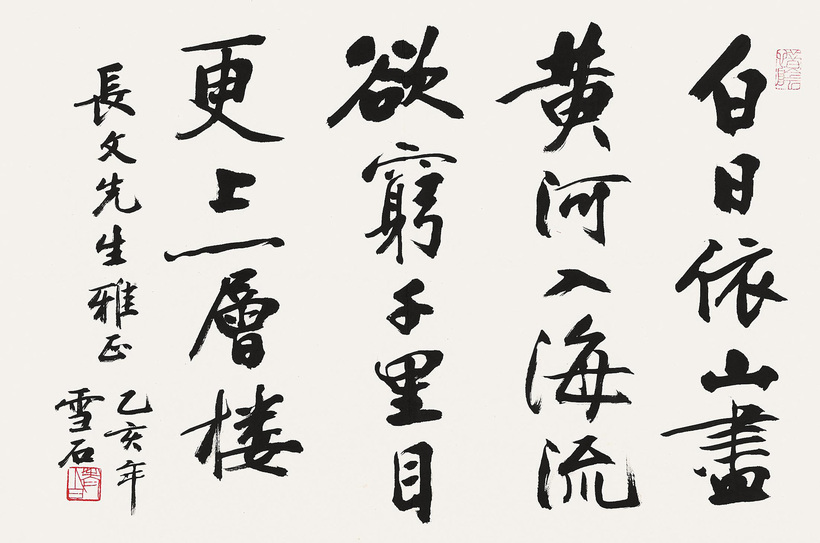 白日依山盡
黄河入海流
欲窮千里目
更上一層楼
長文先生雅正
乙亥年
雪石